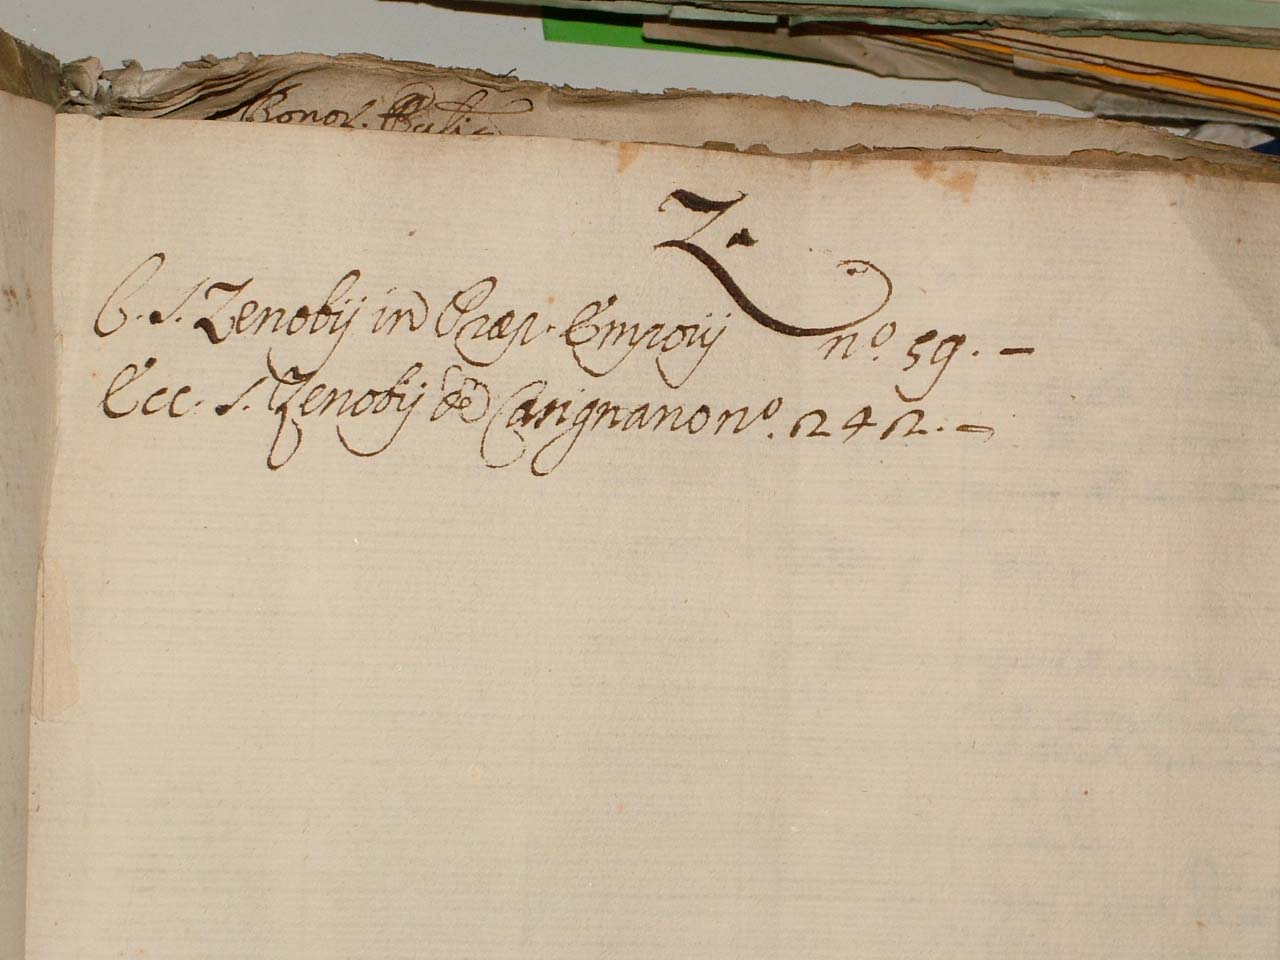 Bonor.
Z.
C. S. Zenobij in Præp. Emporij nº. 59. -
Ecc. S. Zenobij de Casignano nº. 242. -